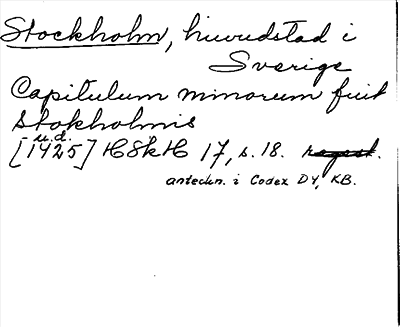 Stockholm, huvudstad i
Sverige
Capitulum minorum fuit
Stokholmis
u.d.
[1425] HSkH 17, s. 18. regest.
anteckn. i Codex D4, KB.